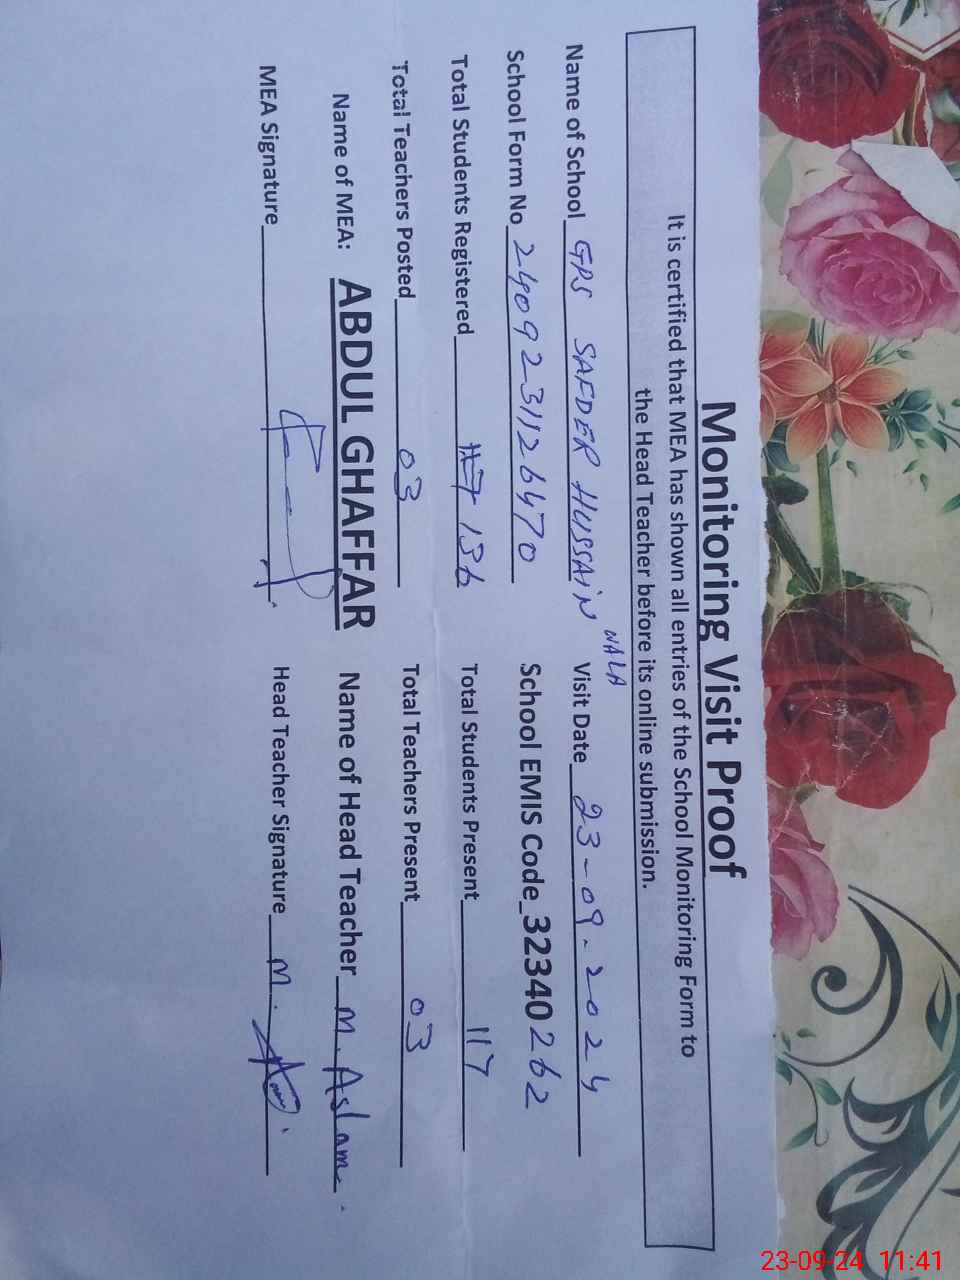 Monitoring Visit Proof
It is certified that MEA has shown all entries of the School Monitoring Form to
the Head Teacher before its online submission.
Name of School GPS SAFDER HUSSAIN WALA Visit Date 23-09-2024
School Form No 24092311126470 School EMIS Code_32340262
Total Students Registered 117 136 Total Students Present 117
Total Teachers Posted 03 Total Teachers Present 03
Name of MEA: ABDUL GHAFFAR Name of Head Teacher M. Aslam.
MEA Signature Head Teacher Signature M.
23-09-24 11:41